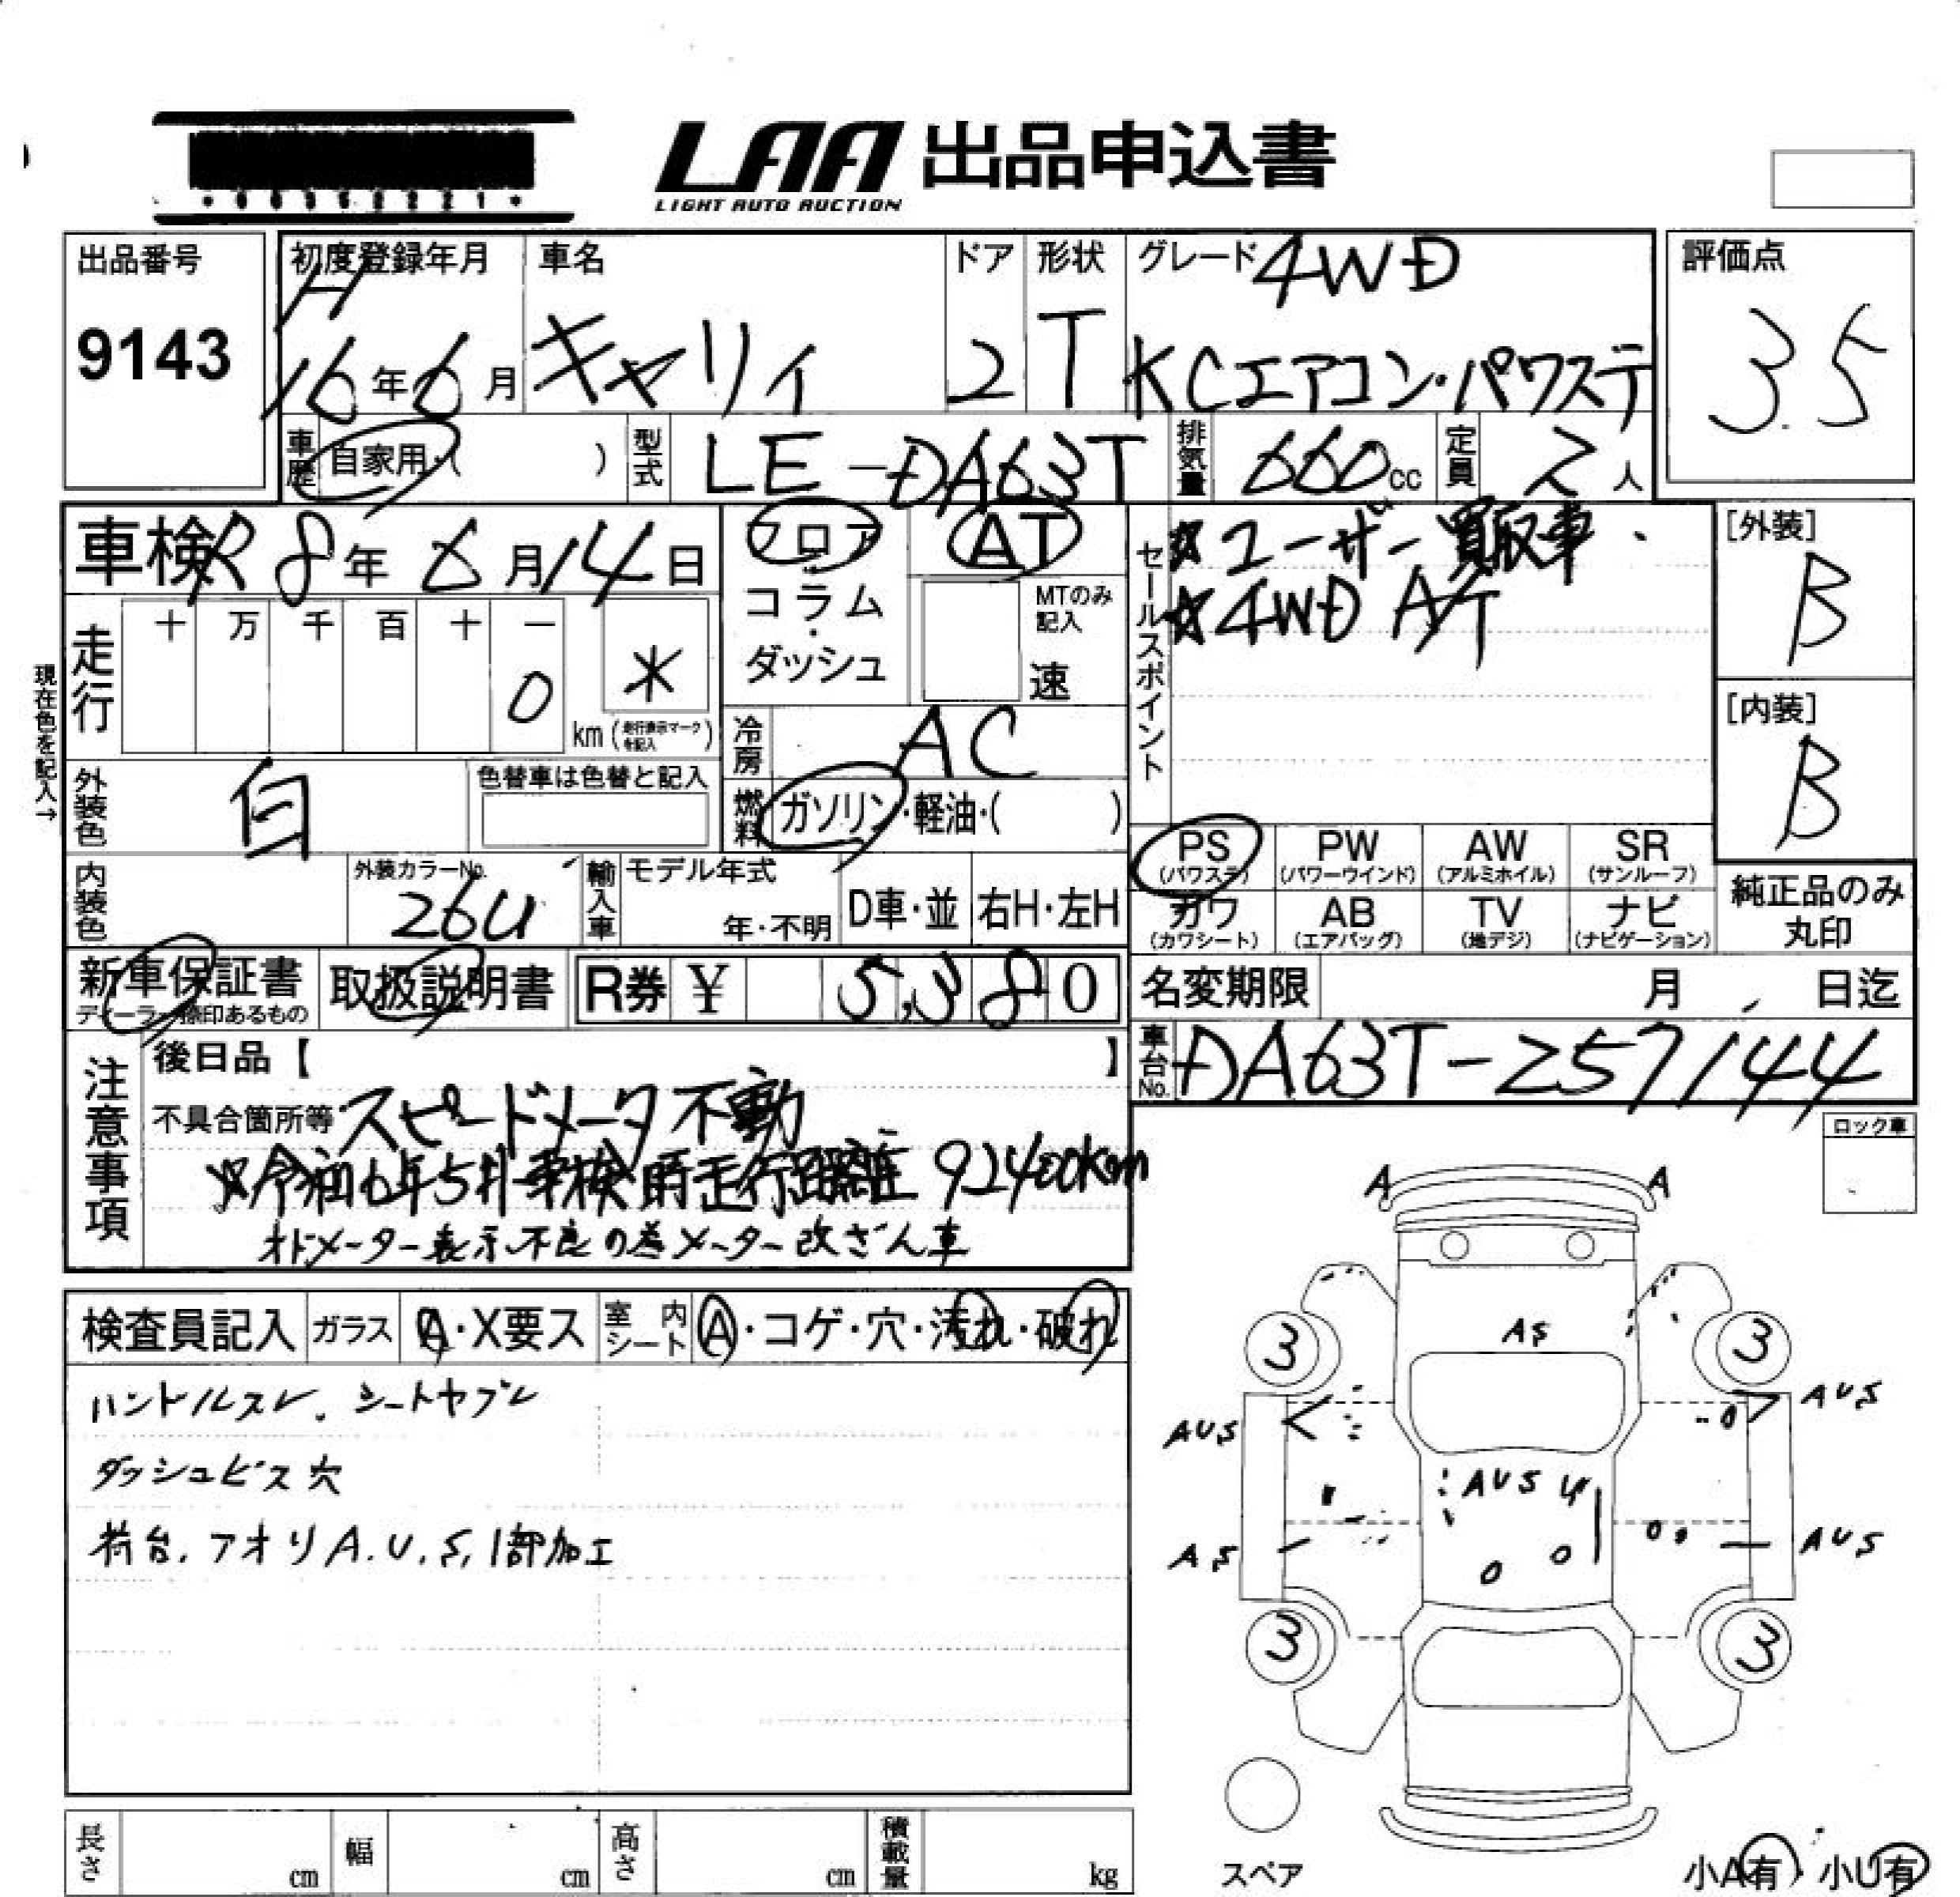 LAA 出品申込書
LIGHT AUTO AUCTION
出品番号
9143
初度登録年月
H
16年6月
車名
キャリィ
ドア
2
形状
T
グレード 4WD
KCエアコン・パワステ
評価点
3.5
車歴 自家用・( )
型式 LE-DA63T
排気量 660cc
定員 2人
車検 R8年6月14日
フロア・コラム・ダッシュ
AT
MTのみ記入
速
セールスポイント
☆ユーザー買取車
☆4WD A/T
[外装]
B
[内装]
B
走行
十 万 千 百 十 一
0
*
km (走行表示マークを記入)
現在色を記入→
冷房 AC
外装色 白
色替車は色替と記入
燃料 ガソリン・軽油・( )
PS (パワステ)
PW (パワーウインド)
AW (アルミホイル)
SR (サンルーフ)
カワ (カワシート)
AB (エアバッグ)
TV (地デジ)
ナビ (ナビゲーション)
純正品のみ丸印
内装色
外装カラーNo.
26U
輸入車
モデル年式
年・不明
D車・並
右H・左H
新車保証書
ディーラー捺印あるもの
取扱説明書
R券 ¥ 5,380
名変期限 月 日迄
車台No. DA63T-257144
注意事項
後日品【 】
不具合箇所等 スピードメータ不動
※令和6年5月車検時走行距離 92400km
オドメーター表示不良の為メーター改ざん車
ロック車
検査員記入
ガラス A・X要ス
室内シート A・コゲ・穴・汚れ・破れ
ハンドルスレ、シートヤブレ
ダッシュビス穴
荷台、アオリA.U.S,1部加工
A A
AS
3 3
AUS AUS
AUS U
AS AUS
3 3
スペア
小A有・小U有
長さ cm
幅 cm
高さ cm
積載量 kg